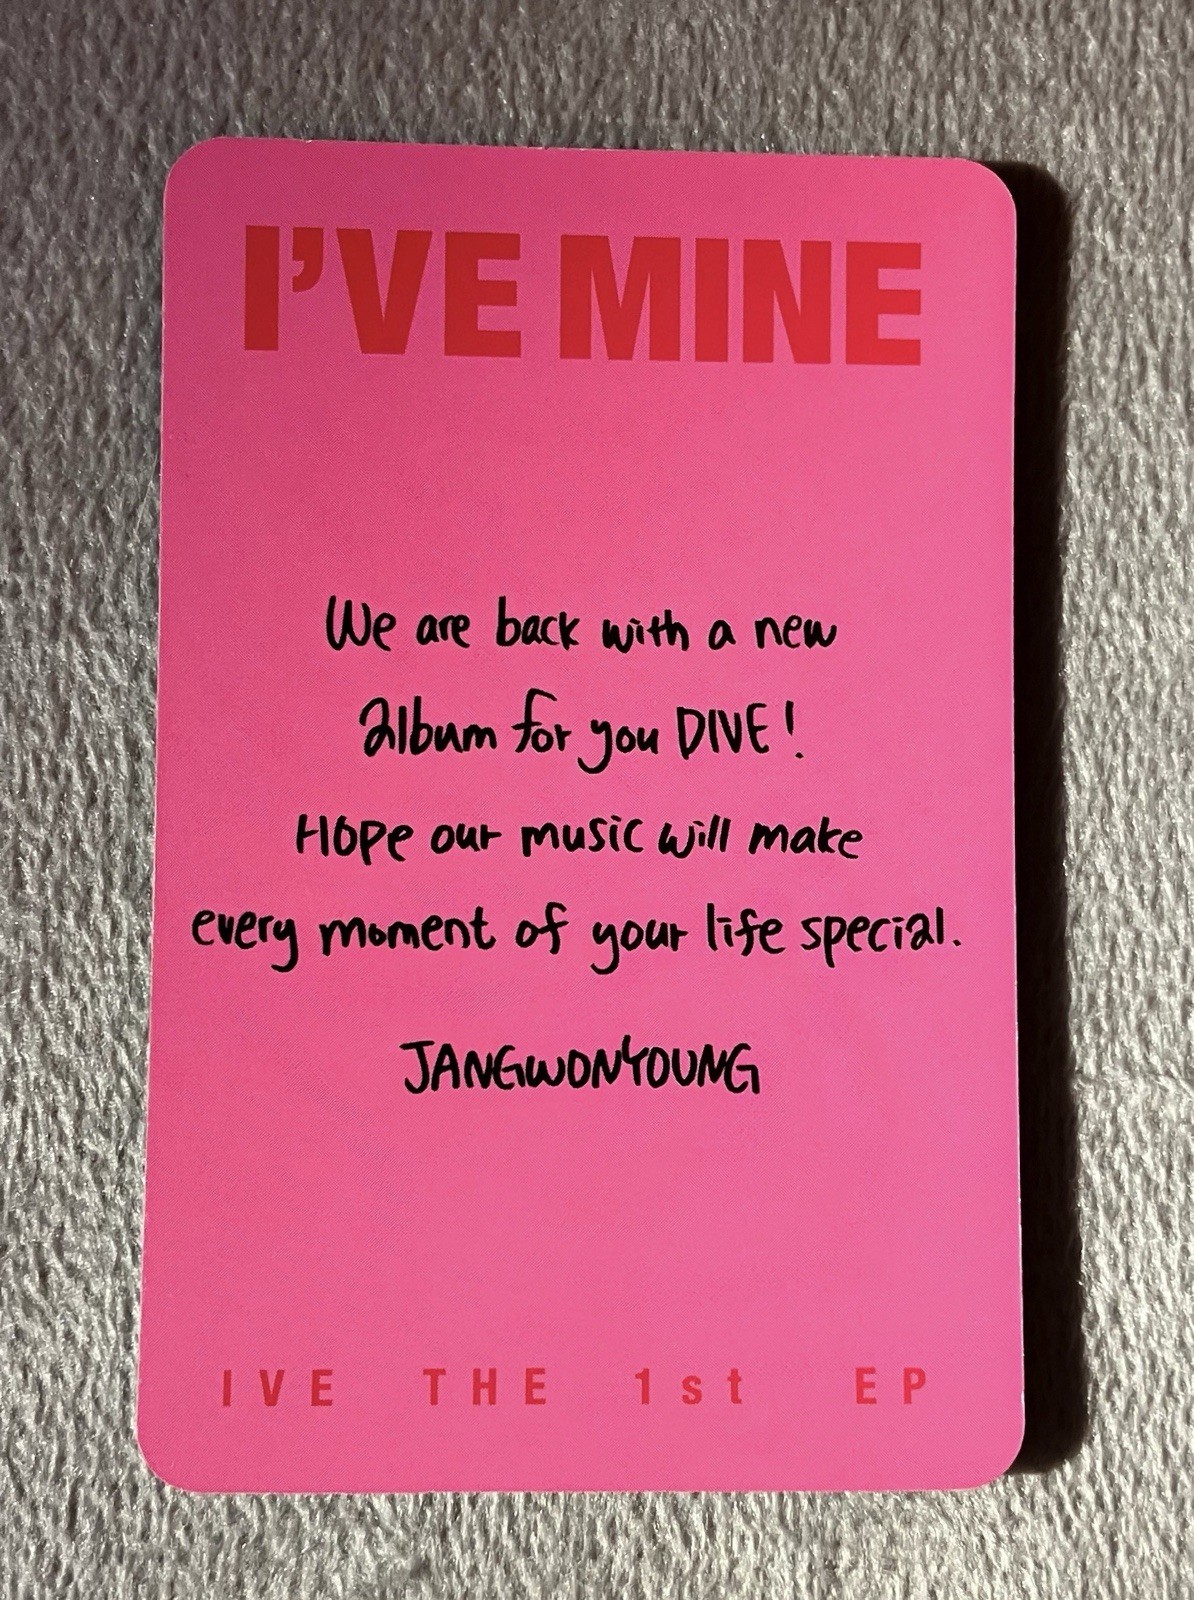 I'VE MINE
We are back with a new
album for you DIVE!
Hope our music will make
every moment of your life special.
JANGWONYOUNG
IVE THE 1st EP